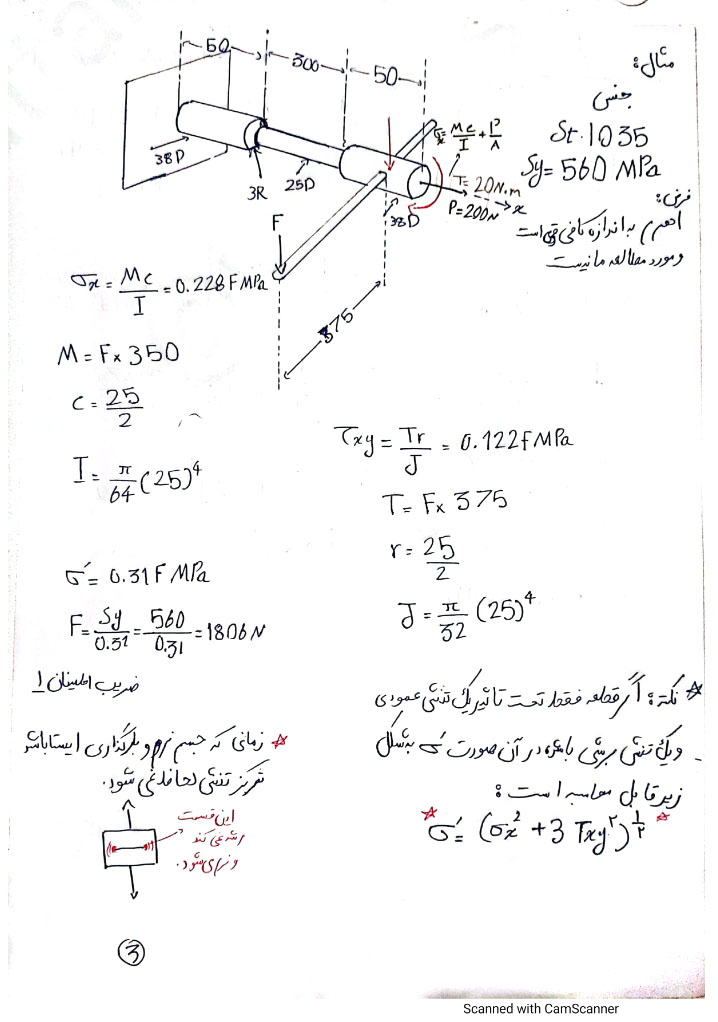 50
300
50
مثال:
جنس
St.1035
Sy= 560 MPa
فرض:
اهرم به اندازه کافی قوی است
و مورد مطالعه ما نیست
38D
3R
25D
38D
σx = Mc/I + P/A
T= 20N.m
P=200N
x
F
375
σx = Mc/I = 0.228F MPa
M = F× 350
c = 25/2
I = π/64 (25)⁴
τxy = Tr/J = 0.122F MPa
T= F× 375
r = 25/2
J = π/32 (25)⁴
σ'= 0.31F MPa
F= Sy/0.31 = 560/0.31 = 1806 N
ضریب اطمینان 1
☆ نکته: اگر قطعه فقط تحت تاثیر یک تنش عمودی
و یک تنش برشی باشد در آن صورت σ' به شکل
زیر قابل محاسبه است:
☆ σ'= (σx² + 3 τxy²)^½ ☆
☆ زمانی که جسم نرم و بارگذاری ایستا باشد
تمرکز تنش لحاظ نمی شود.
این قسمت
و نرم می شود.
3
Scanned with CamScanner